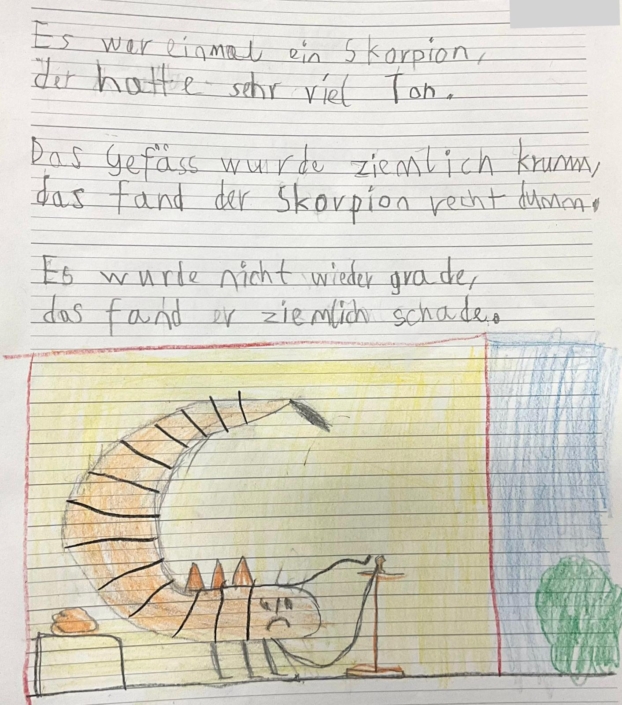 Es war einmal ein Skorpion,
der hatte sehr viel Ton.
Das Gefäss wurde ziemlich krumm,
das fand der Skorpion recht dumm.
Es wurde nicht wieder grade,
das fand er ziemlich schade.